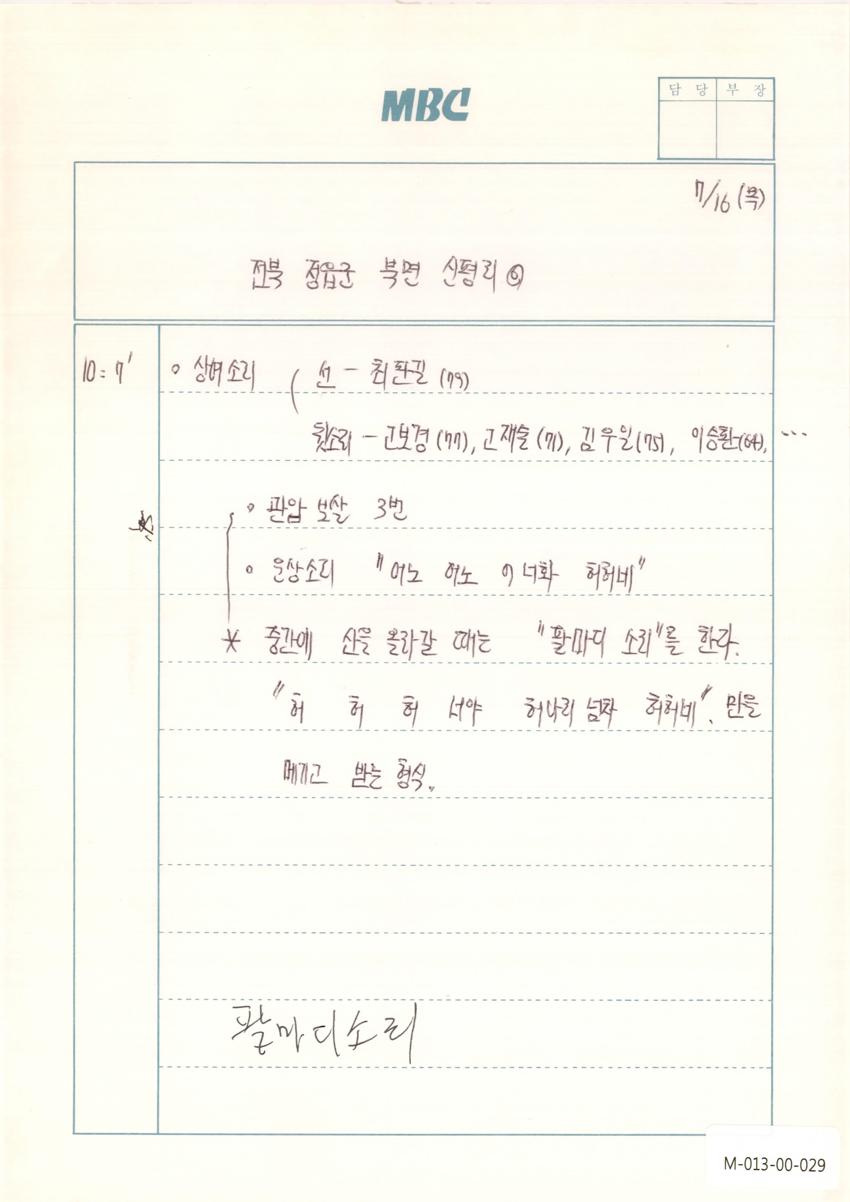 MBC
담 당 부 장
7/16 (목)
전북 정읍군 북면 신평리 ⑥
10: 7′ ○ 상여소리 ( 선 - 최판길 (79)
뒷소리 - 고보경 (77), 고재술 (71), 김우일 (75), 이승환 (64), …
○ 관암 보살 3번
○ 운상소리 "어노 어노 어너화 허허비"
* 중간에 산을 올라갈 때는 "팔마디 소리"를 한다.
"허 허 허 서야 허나리 넘자 허허비". 민을
메기고 받는 형식.
팔마디소리
M-013-00-029